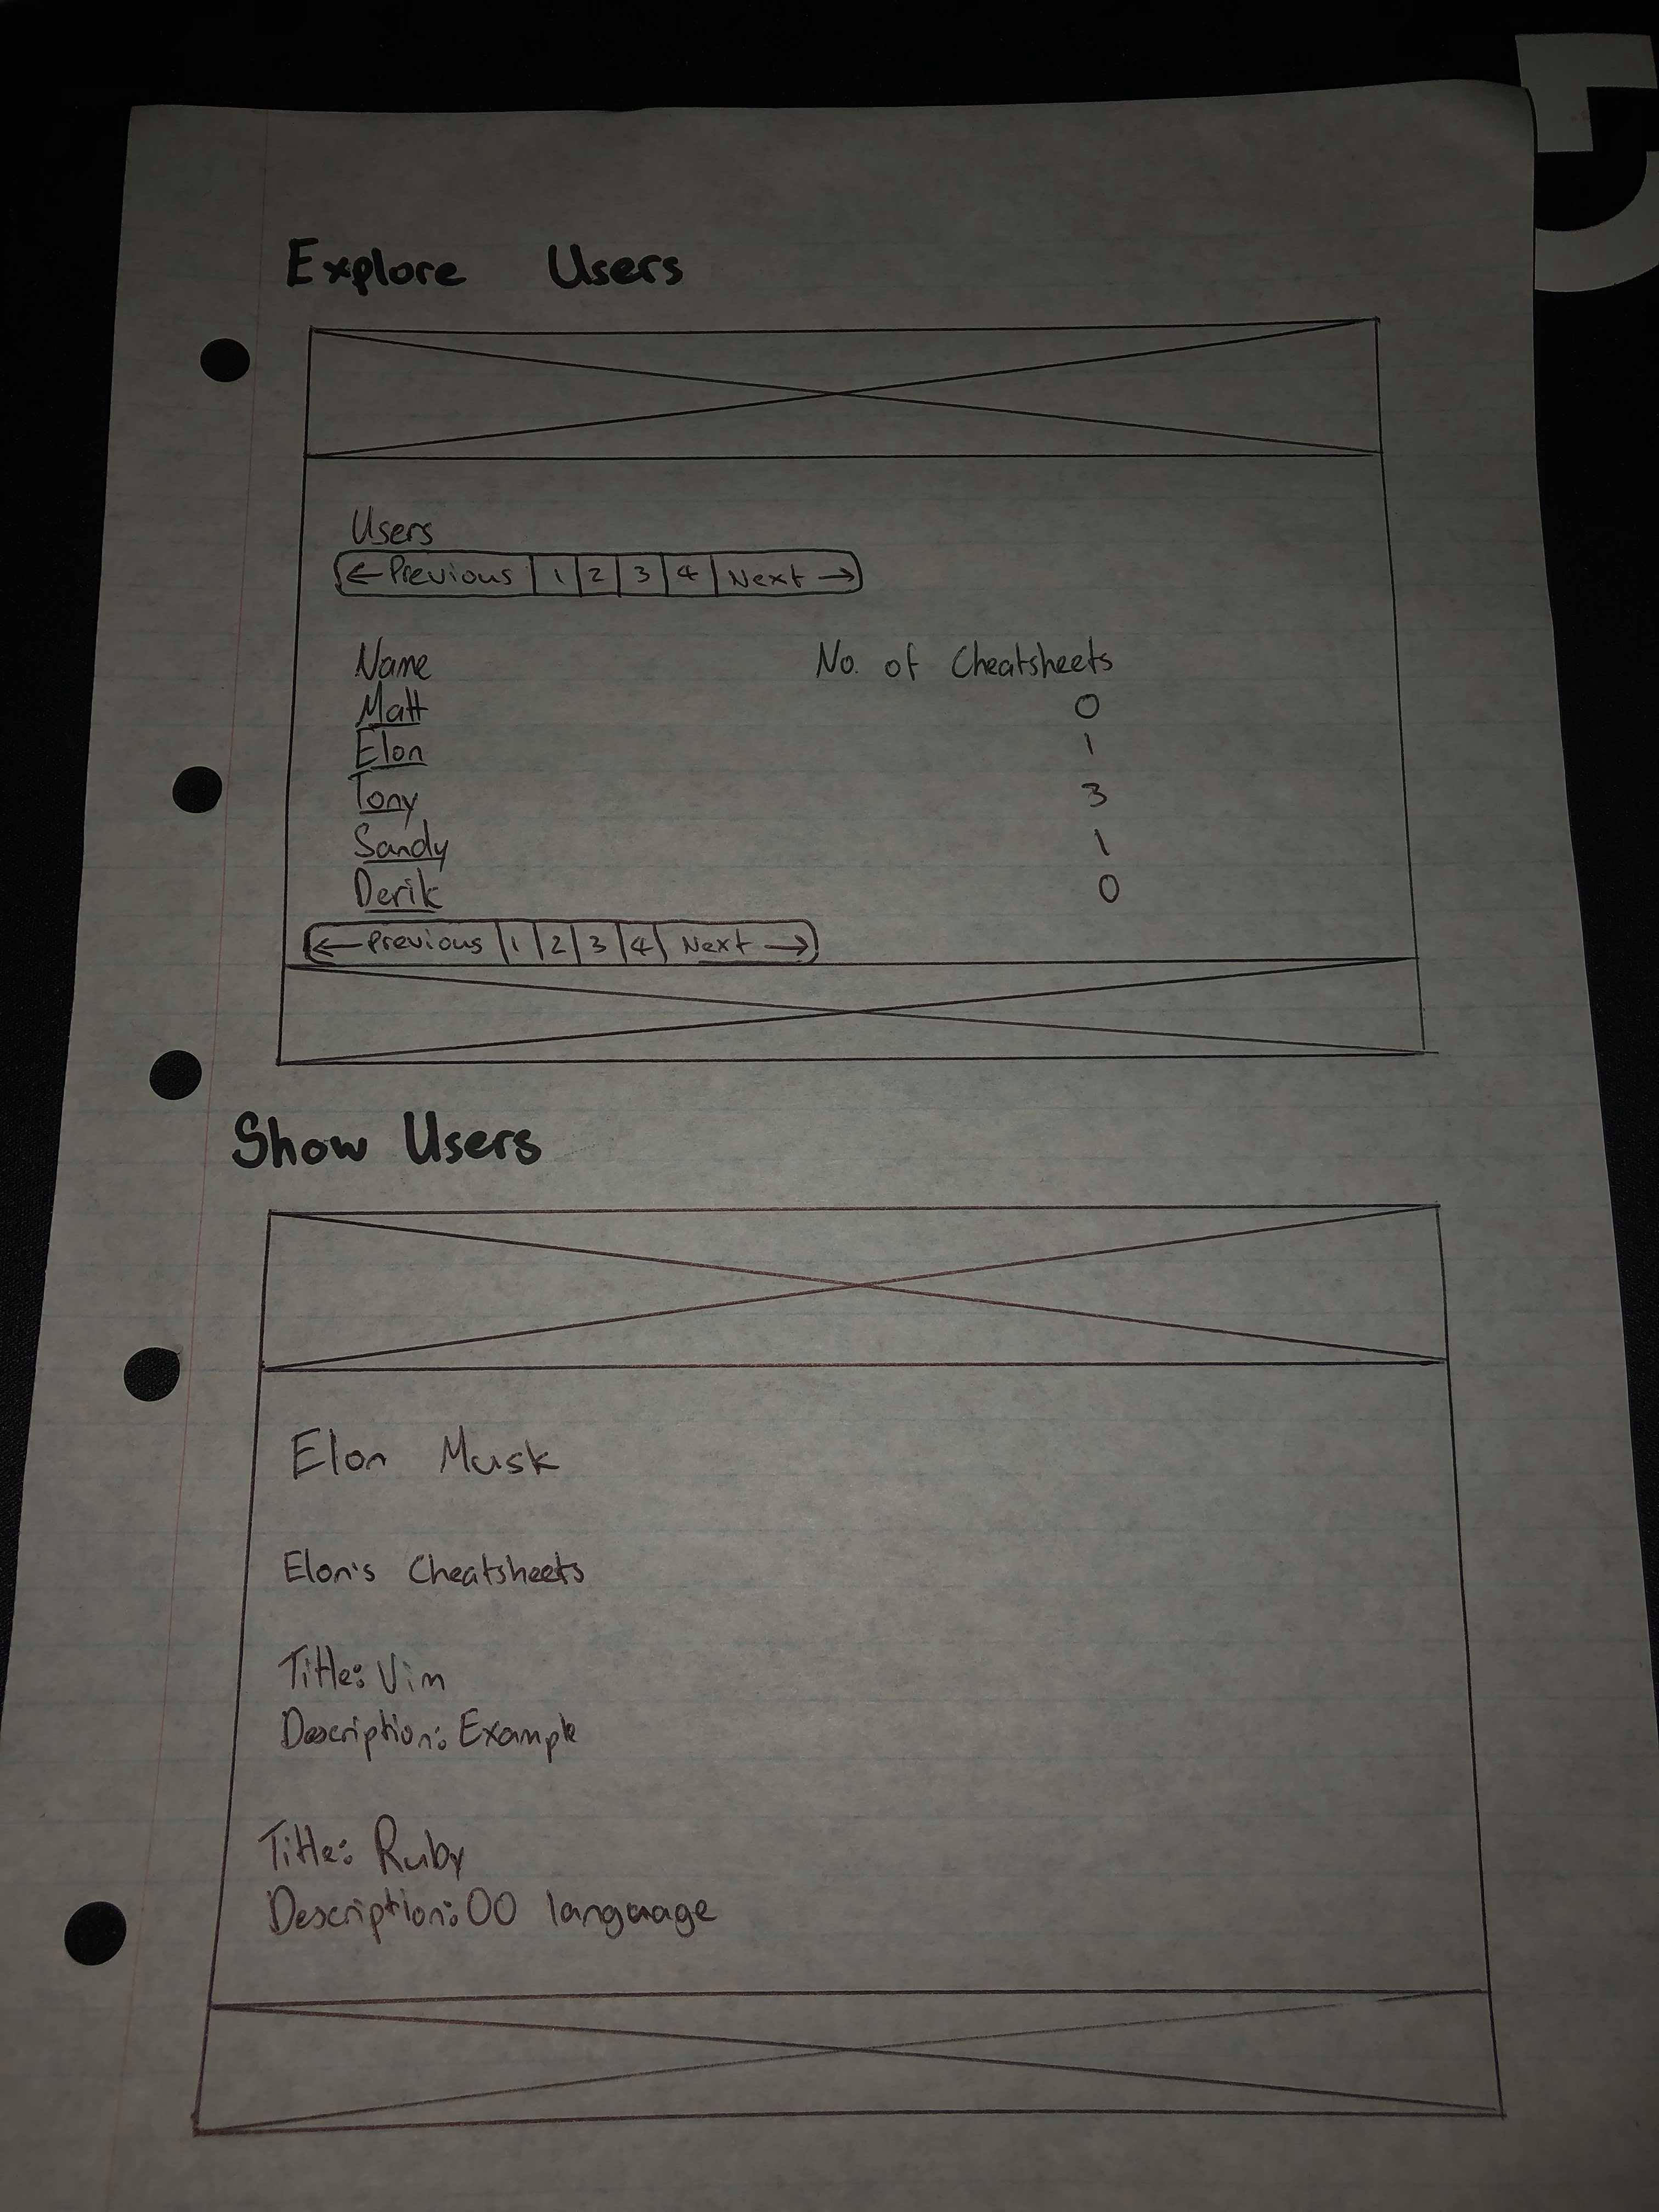 Explore Users
Users
← Previous | 1 | 2 | 3 | 4 | Next →
Name No. of Cheatsheets
Matt 0
Elon 1
Tony 3
Sandy 1
Derik 0
← Previous | 1 | 2 | 3 | 4 | Next →
Show Users
Elon Musk
Elon's Cheatsheets
Title: Vim
Description: Example
Title: Ruby
Description: OO language